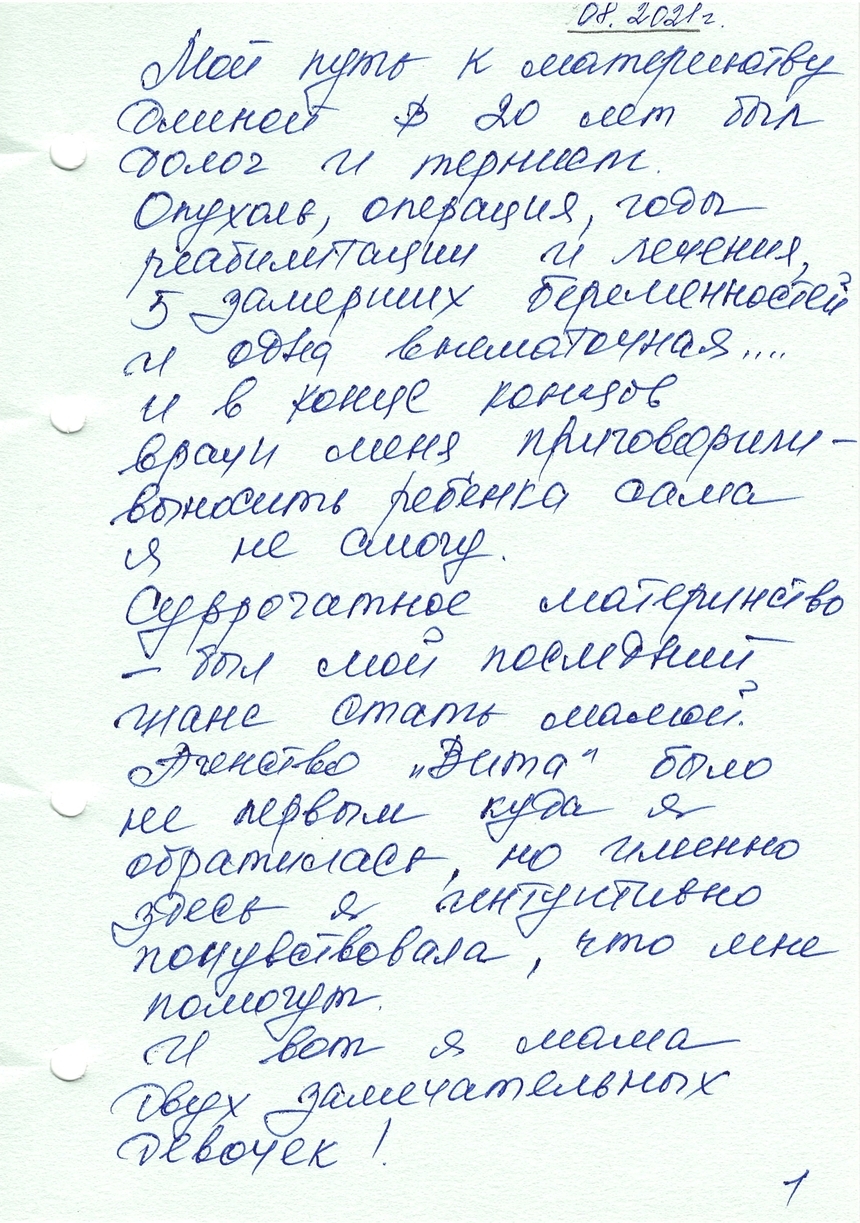 08.2021г.
Мой путь к материнству
длиной в 20 лет был
долог и тернист.
Опухоль, операция, годы
реабилитации и лечения,
5 замерших беременностей
и одна внематочная....
и в конце концов
врачи меня приговорили –
выносить ребёнка сама
я не смогу.
Суррогатное материнство
– был мой последний
шанс стать мамой.
Агенство „Вита" было
не первым куда я
обратилась, но именно
здесь я интуитивно
почувствовала, что мне
помогут.
И вот я мама
двух замечательных
девочек!
1